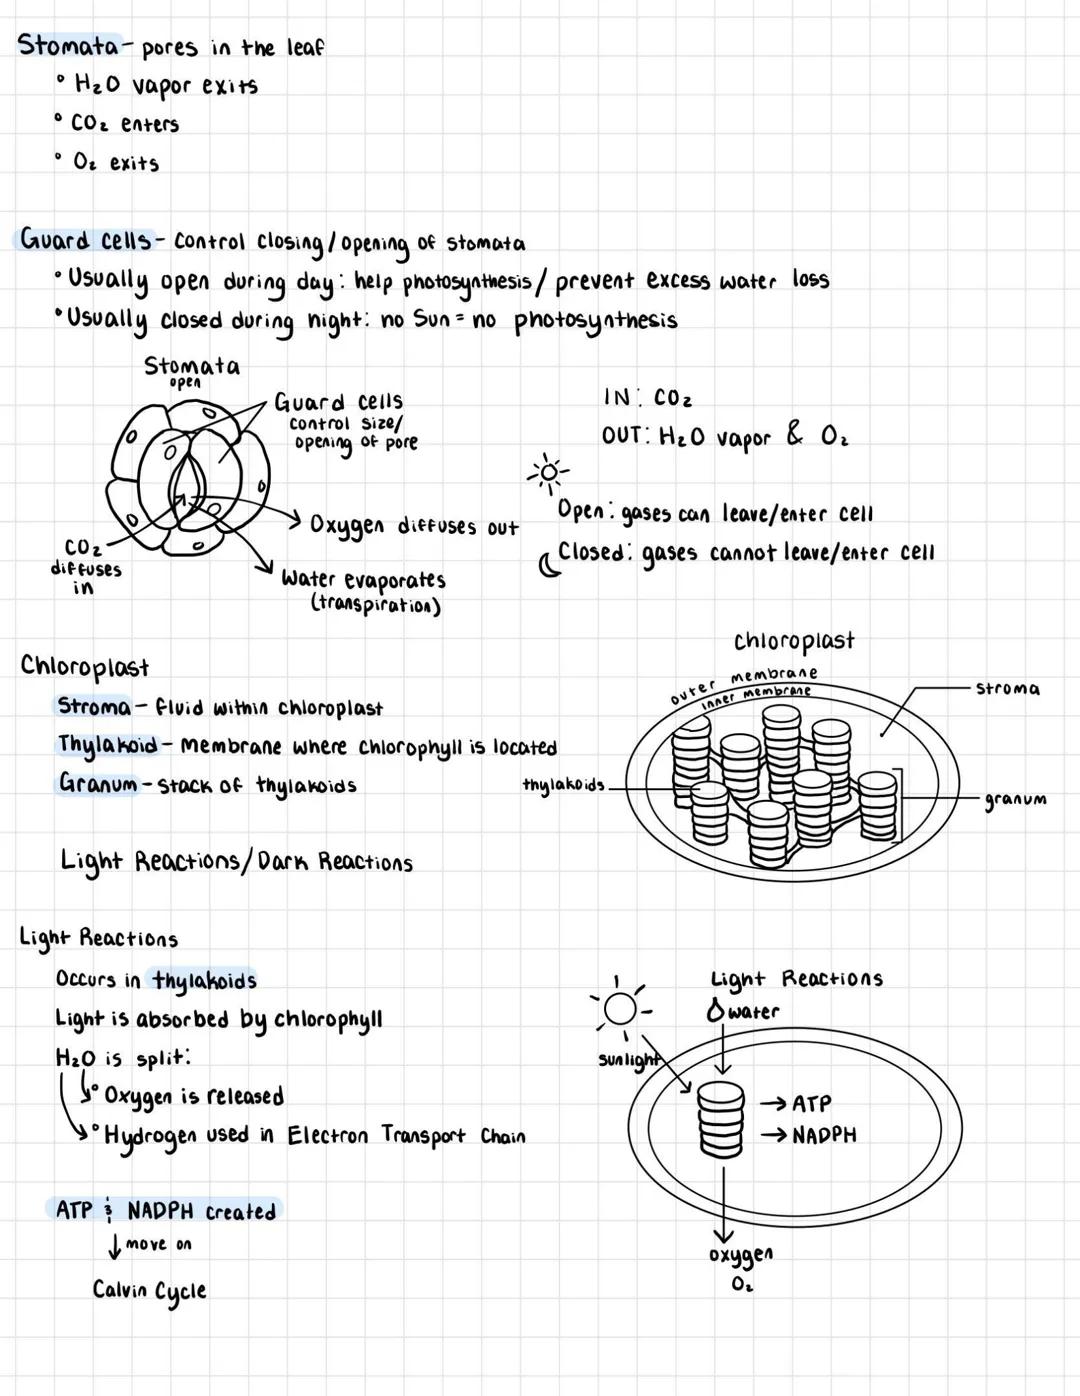 Stomata - pores in the leaf
° H₂O vapor exits
° CO₂ enters
° O₂ exits
Guard cells - Control closing/opening of stomata
• Usually open during day: help photosynthesis/prevent excess water loss
• Usually closed during night: no Sun = no photosynthesis
Stomata
open
Guard cells
control size/
opening of pore
Oxygen diffuses out
Water evaporates
(transpiration)
CO₂
diffuses
in
IN: CO₂
OUT: H₂O vapor & O₂
Open: gases can leave/enter cell
Closed: gases cannot leave/enter cell
Chloroplast
Stroma - fluid within chloroplast
Thylakoid - Membrane where chlorophyll is located
Granum - Stack of thylakoids
Light Reactions/Dark Reactions
chloroplast
outer membrane
inner membrane
stroma
thylakoids
granum
Light Reactions
Occurs in thylakoids
Light is absorbed by chlorophyll
H₂O is split:
° Oxygen is released
° Hydrogen used in Electron Transport Chain
ATP & NADPH created
↓ move on
Calvin Cycle
Light Reactions
water
sunlight
→ ATP
→ NADPH
oxygen
O₂